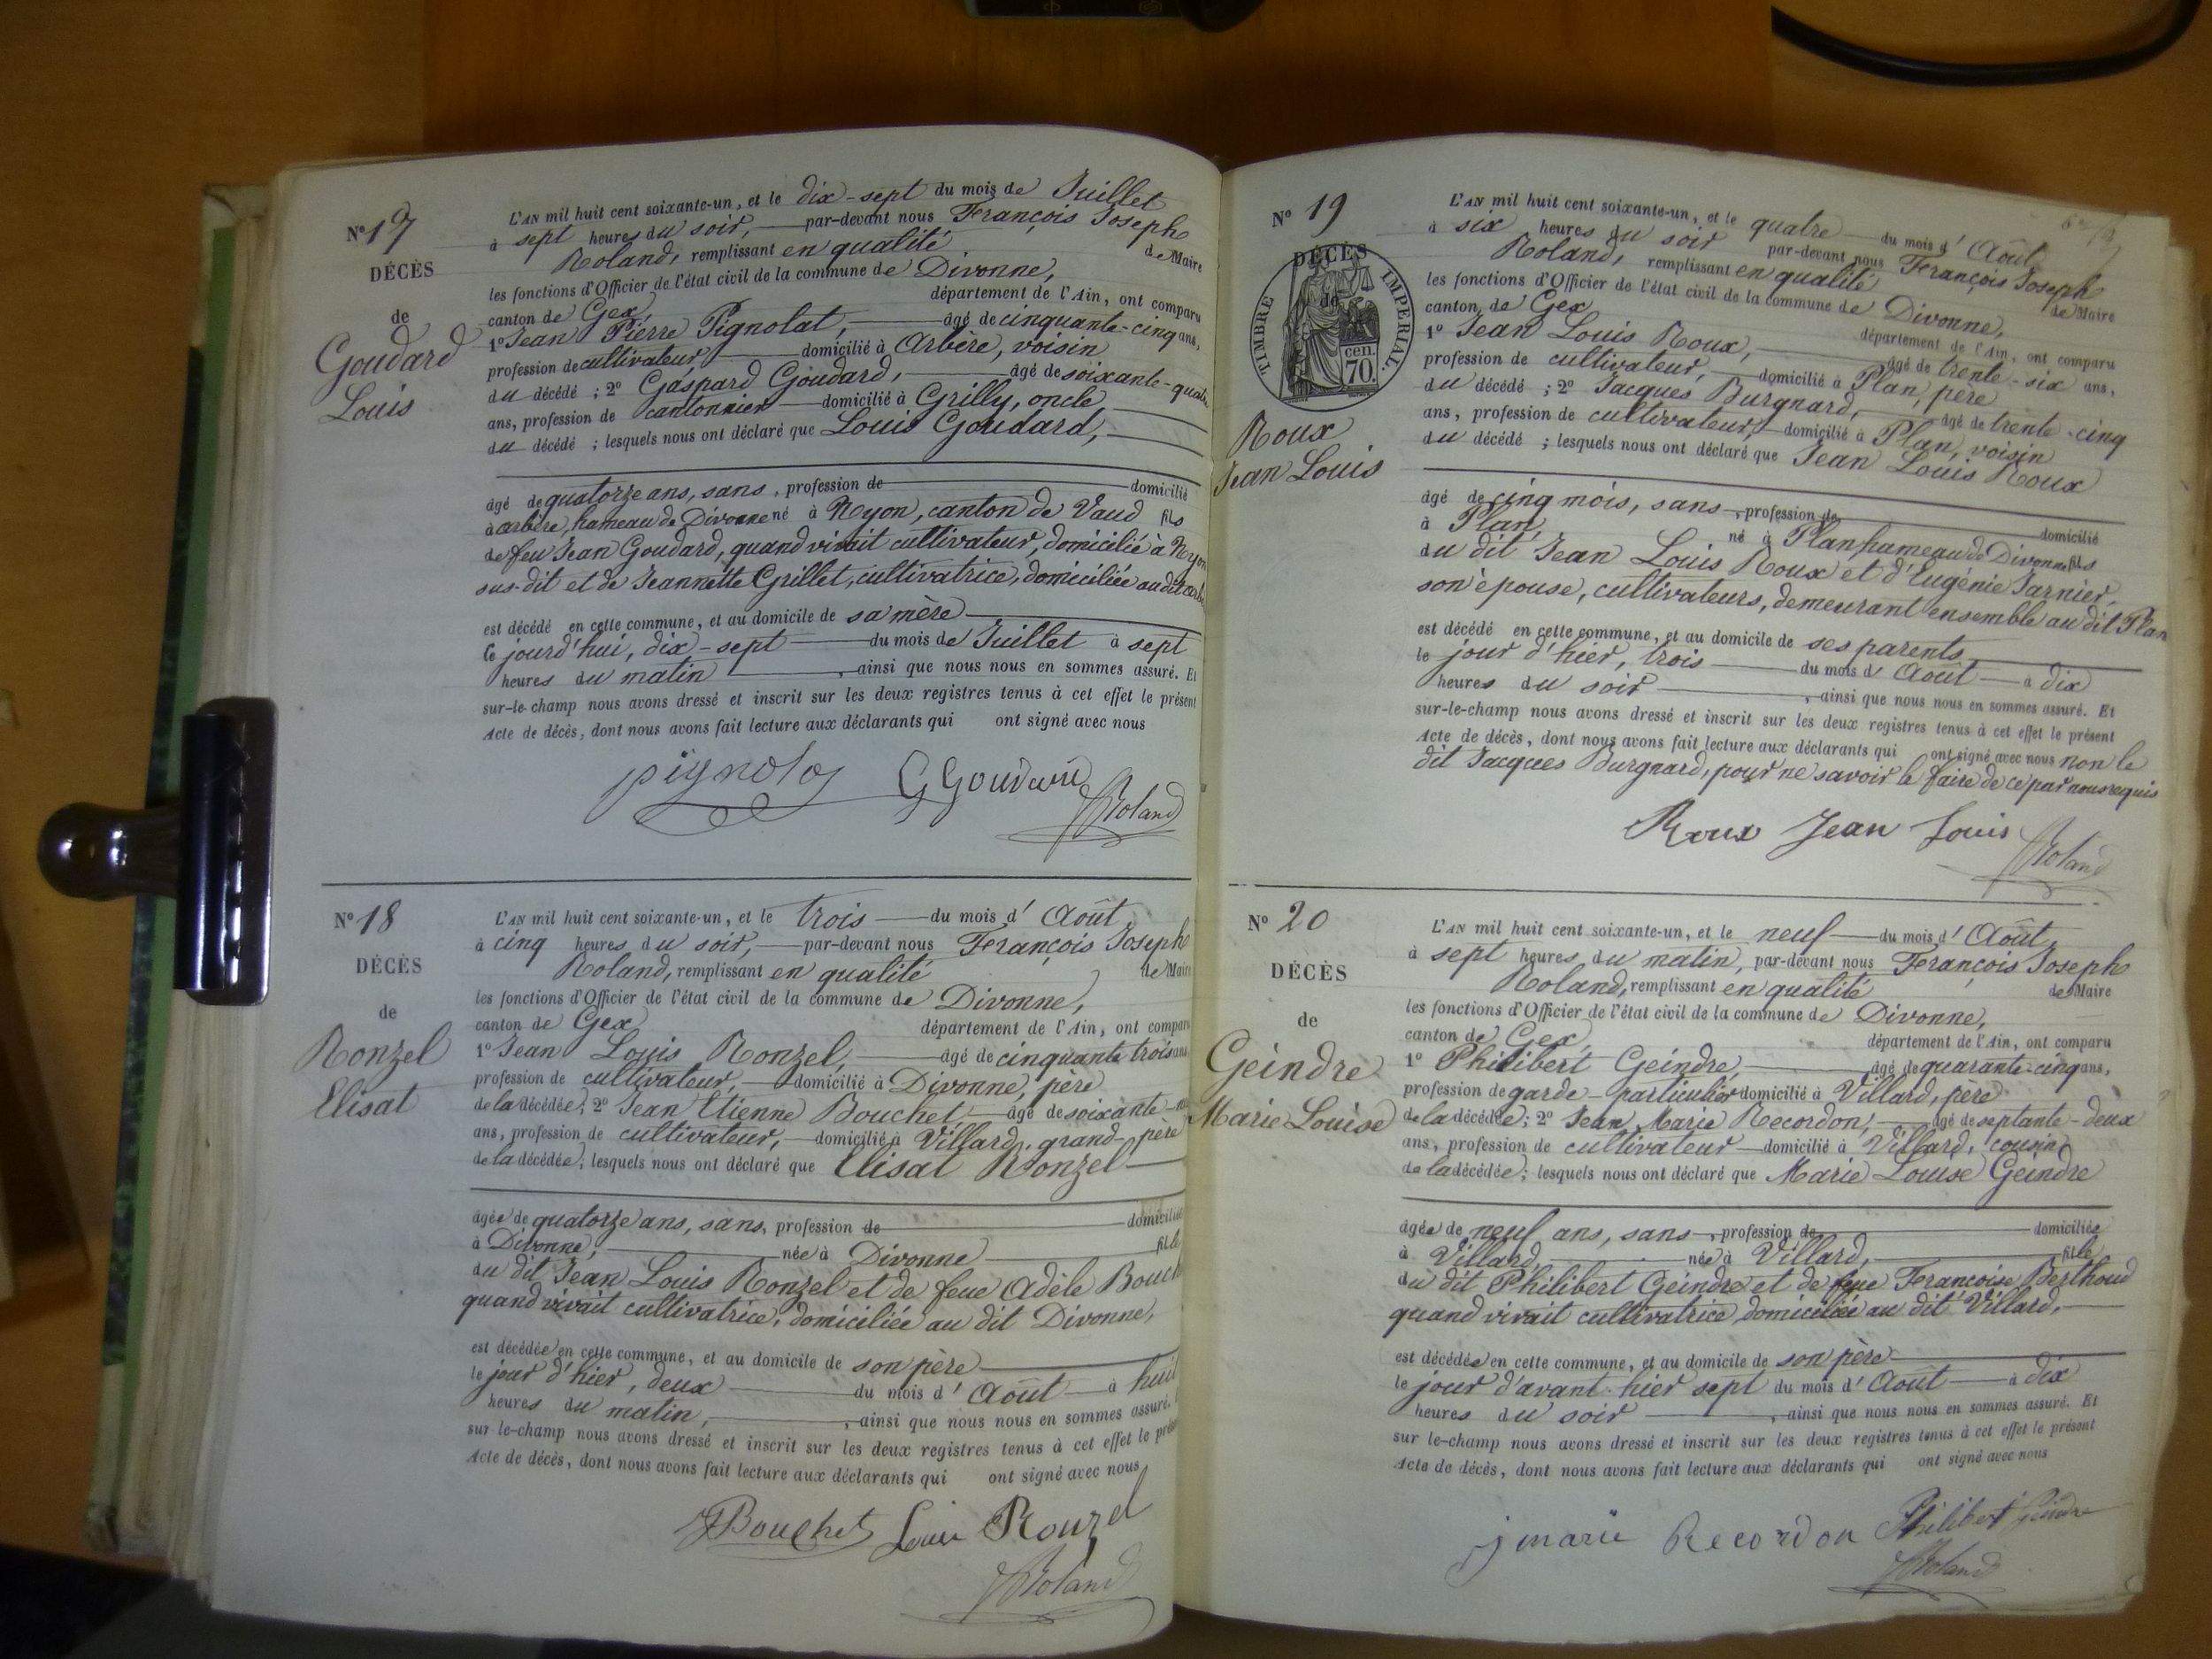 N° 17
DÉCÈS
de
Goudard
Louis
L'AN mil huit cent soixante-un, et le dix-sept du mois de Juillet
à sept heures du soir, par-devant nous François Joseph
Roland, remplissant en qualité de Maire
les fonctions d'Officier de l'état civil de la commune de Divonne,
canton de Gex, département de l'Ain, ont comparu
1° Jean Pierre Pignolat, âgé de cinquante-cinq ans,
profession de cultivateur, domicilié à Arbère, voisin
du décédé ; 2° Gaspard Goudard, âgé de soixante-quatre
ans, profession de cantonnier domicilié à Grilly, oncle
du décédé ; lesquels nous ont déclaré que Louis Goudard,
âgé de quatorze ans, sans, profession de domicilié
à arbère, hameau de Divonne né à Nyon, canton de Vaud fils
de feu Jean Goudard, quand vivait cultivateur, domicilié à Nyon
sus-dit et de Jeannette Grillet, cultivatrice, domiciliée au dit
est décédé en cette commune, et au domicile de sa mère
le jourd'hui, dix-sept du mois de Juillet à sept
heures du matin, ainsi que nous nous en sommes assuré. Et
sur-le-champ nous avons dressé et inscrit sur les deux registres tenus à cet effet le présent
Acte de décès, dont nous avons fait lecture aux déclarants qui ont signé avec nous
pignolat G Goudard
Roland
N° 18
DÉCÈS
de
Ronzel
Elisat
L'AN mil huit cent soixante-un, et le trois du mois d'Août
à cinq heures du soir, par-devant nous François Joseph
Roland, remplissant en qualité de Maire
les fonctions d'Officier de l'état civil de la commune de Divonne,
canton de Gex département de l'Ain, ont comparu
1° Jean Louis Ronzel, âgé de cinquante trois ans
profession de cultivateur, domicilié à Divonne, père
de la décédée; 2° Jean Etienne Bouchet âgé de soixante-
ans, profession de cultivateur, domicilié à Villard, grand-père
de la décédée; lesquels nous ont déclaré que Elisat Ronzel
âgée de quatorze ans, sans, profession de domiciliée
à Divonne, née à Divonne fille
du dit Jean Louis Ronzel et de feue Adèle Bouch
quand vivait cultivatrice, domiciliée au dit Divonne,
est décédée en cette commune, et au domicile de son père
le jour d'hier, deux du mois d'Août à huit
heures du matin, ainsi que nous nous en sommes assuré.
sur-le-champ nous avons dressé et inscrit sur les deux registres tenus à cet effet le présent
Acte de décès, dont nous avons fait lecture aux déclarants qui ont signé avec nous
Bouchet Louis Ronzel
Roland
N° 19
DÉCÈS
de
TIMBRE IMPÉRIAL.
cen.
70.
Roux
Jean Louis
L'AN mil huit cent soixante-un, et le quatre du mois d'Août
à six heures du soir par-devant nous François Joseph
Roland, remplissant en qualité de Maire
les fonctions d'Officier de l'état civil de la commune de Divonne,
canton de Gex département de l'Ain, ont comparu
1° Jean Louis Roux, âgé de trente-six ans,
profession de cultivateur, domicilié à Plan, père
du décédé ; 2° Jacques Burgnard, âgé de trente-cinq
ans, profession de cultivateur, domicilié à Plan, voisin
du décédé ; lesquels nous ont déclaré que Jean Louis Roux
âgé de cinq mois, sans, profession de domicilié
à Plan, né à Plan hameau de Divonne fils
du dit Jean Louis Roux et d'Eugénie Jarnier,
son épouse, cultivateurs, demeurant ensemble au dit Plan
est décédé en cette commune, et au domicile de ses parents
le jour d'hier, trois du mois d'Août à dix
heures du soir, ainsi que nous nous en sommes assuré. Et
sur-le-champ nous avons dressé et inscrit sur les deux registres tenus à cet effet le présent
Acte de décès, dont nous avons fait lecture aux déclarants qui ont signé avec nous non le
dit Jacques Burgnard, pour ne savoir le faire de ce par nous requis
Roux Jean Louis
Roland
N° 20
DÉCÈS
de
Geindre
Marie Louise
L'AN mil huit cent soixante-un, et le neuf du mois d'Août
à sept heures du matin, par-devant nous François Joseph
Roland, remplissant en qualité de Maire
les fonctions d'Officier de l'état civil de la commune de Divonne,
canton de Gex département de l'Ain, ont comparu
1° Philibert Geindre, âgé de quarante-cinq ans,
profession de garde-particulier domicilié à Villard, père
de la décédée; 2° Jean Marie Recordon, âgé de septante-deux
ans, profession de cultivateur domicilié à Villard, cousin
de la décédée; lesquels nous ont déclaré que Marie Louise Geindre
âgée de neuf ans, sans, profession de domiciliée
à Villard, née à Villard, fille
du dit Philibert Geindre et de feue Françoise Berthoud
quand vivait cultivatrice domiciliée au dit Villard,
est décédée en cette commune, et au domicile de son père
le jour d'avant-hier sept du mois d'Août à dix
heures du soir, ainsi que nous nous en sommes assuré. Et
sur le-champ nous avons dressé et inscrit sur les deux registres tenus à cet effet le présent
Acte de décès, dont nous avons fait lecture aux déclarants qui ont signé avec nous
j marie Recordon Philibert Geindre
Roland